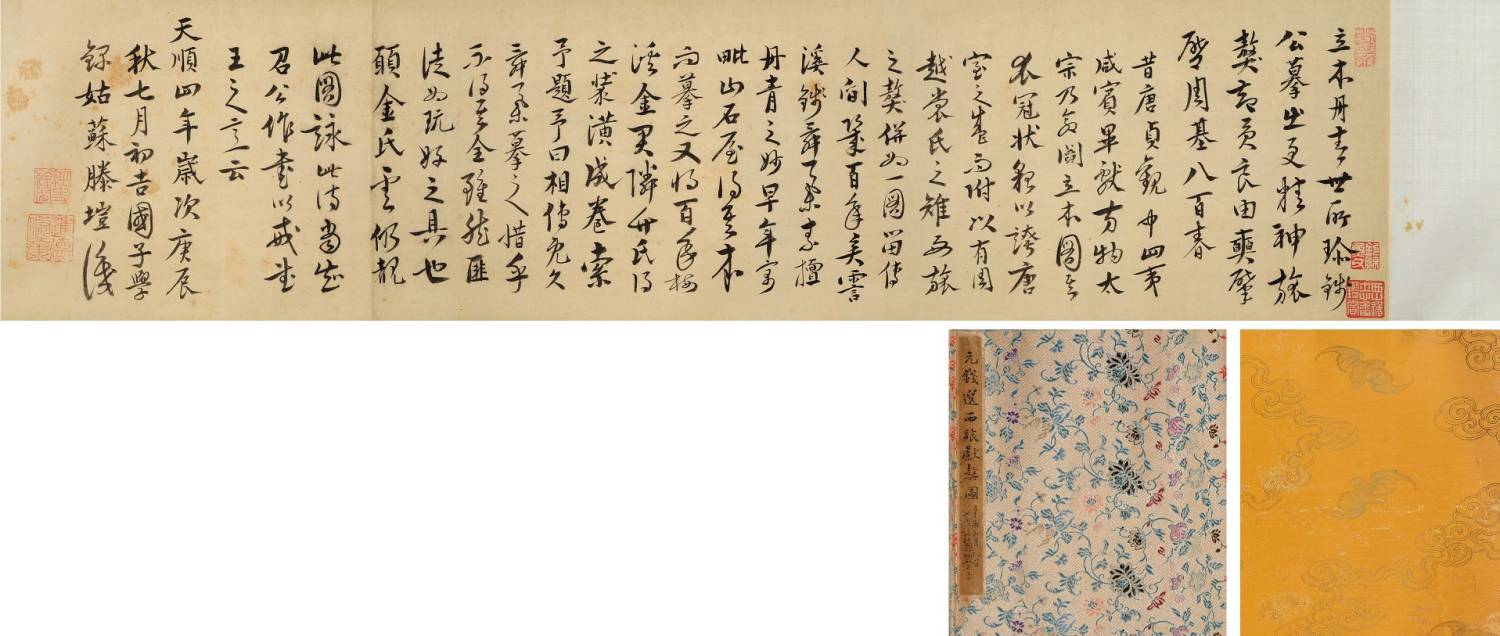 立本丹青世所珍錢
公摹出更精神旅
獒卻貢良由奭肇
啓周基八百春
昔唐貞觀中四夷
咸賓畢獻方物太
宗乃命閻立本圖其
衣冠狀貌以誇唐
室之盛而附以有周
越裳氏之雉西旅
之獒併為一圖留傳
人間幾百年矣霅
溪錢舜舉素擅
丹青之妙早年寓
毗山石屋得其本
而摹之又將百年梅
溪金君隣卉氏得
之裝潢成卷索
予題予曰相傳允久
舜舉摹之惜乎
不得其全雖然匪
徒為玩好之具也
願金氏雲仍觀
此圖詠此詩當知
召公作書以戒武
王之意云
天順四年歲次庚辰
秋七月初吉國子學
錄姑蘇滕塏識
元錢選西旅獻獒圖